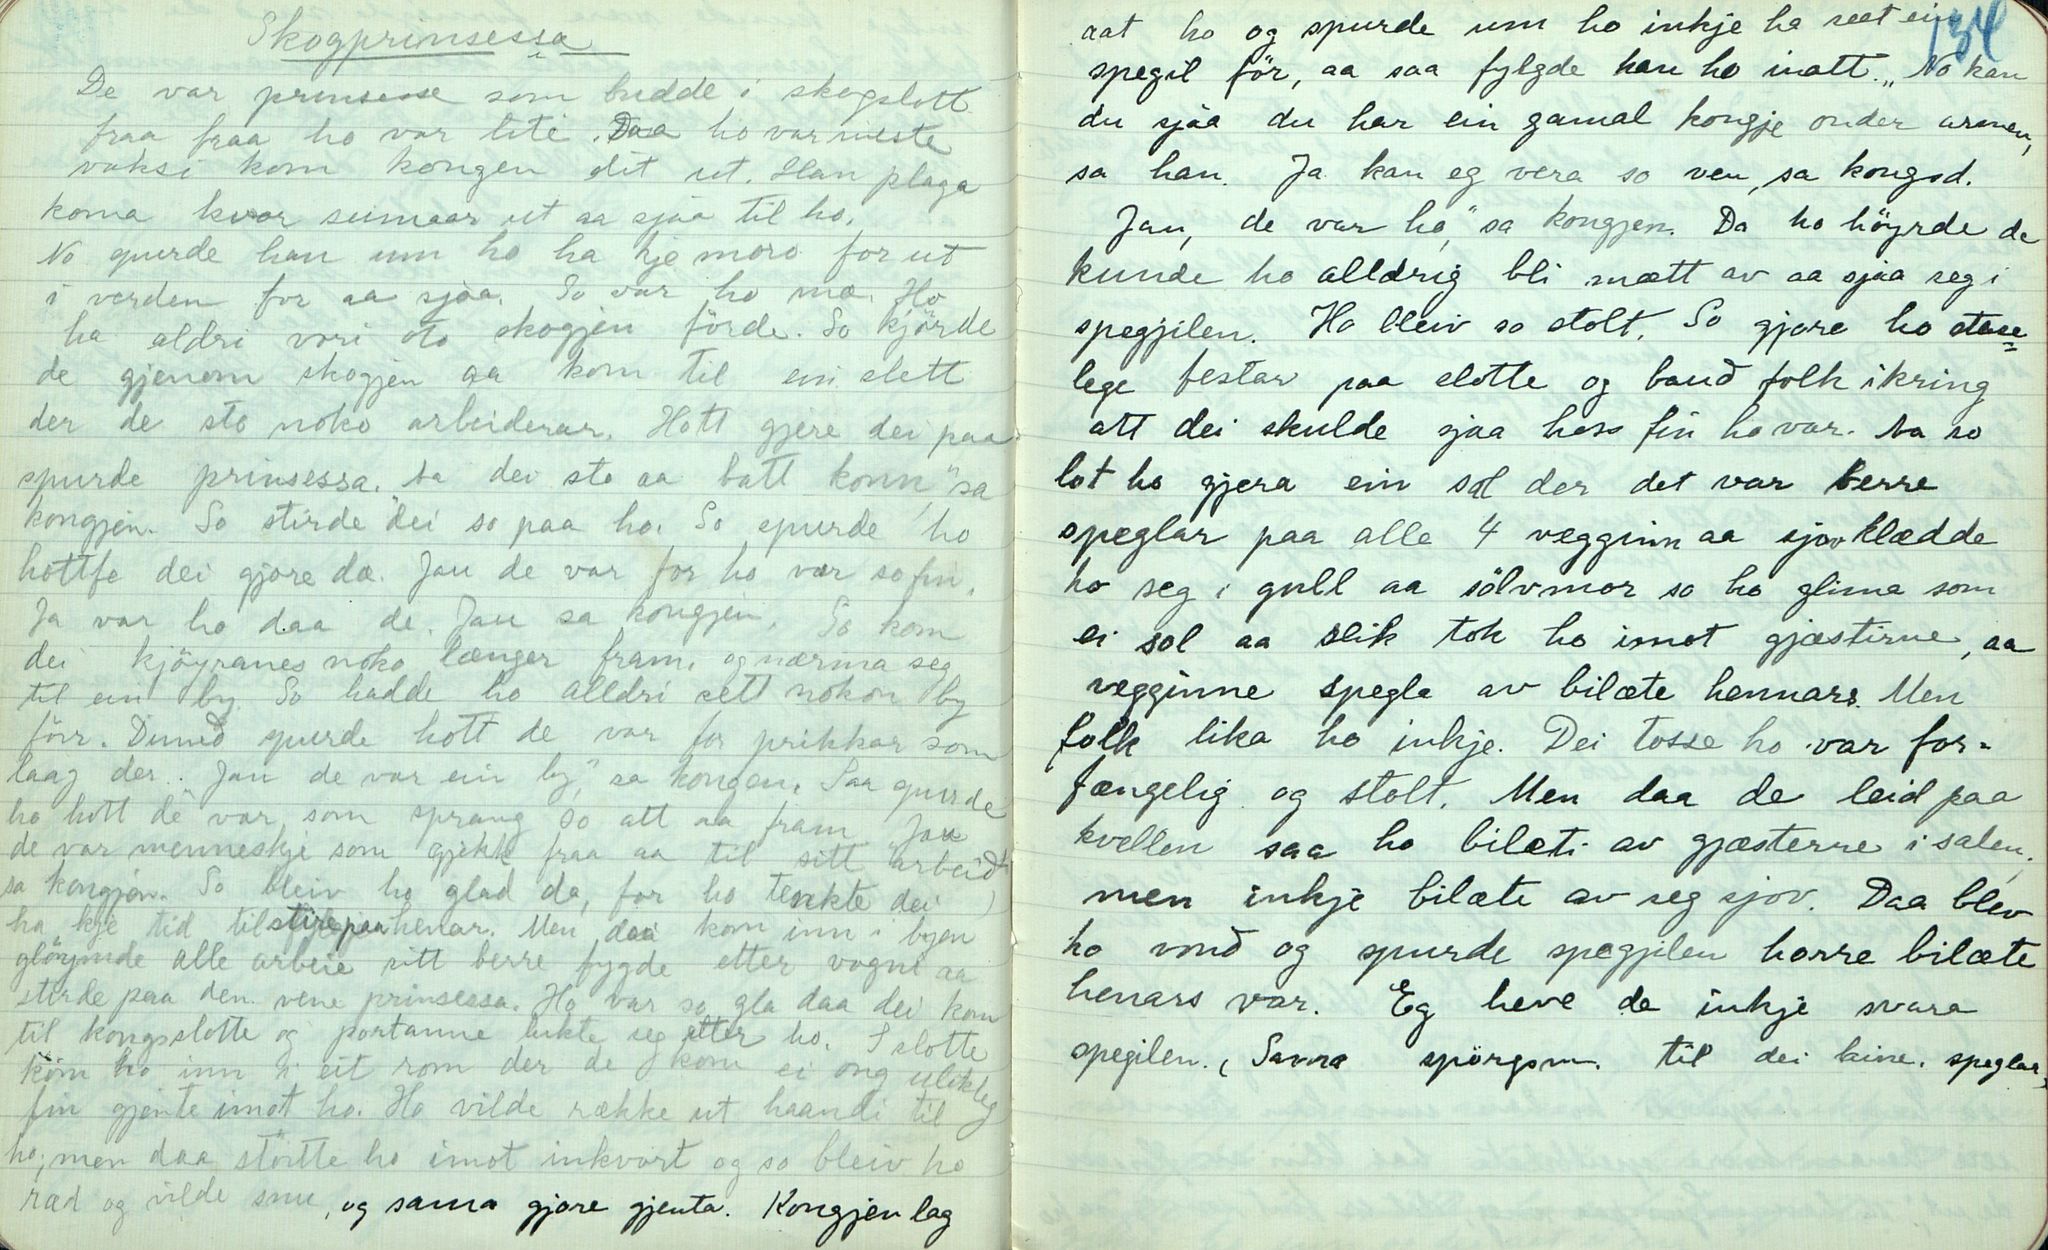 Skogprinsessa
De var prinsesse som budde i skogslott
fraa fraa ho var liti. Daa ho var meste
vaksi kom kongen dit ut. Han plaga
koma kvar sumaar ut aa sjaa til ho.
No spurde han um ho ha kje moro for ut
i verden for aa sjaa. So var ho mæ. Ho
ha aldri vori oto skogjen förde. So kjörde
de gjenom skogjen aa kom til ein slett
der de sto noko arbeidarar. Hott gjere dei paa
spurde prinsessa. Aa dei sto aa batt konn" sa
kongjen. So stirde dei so paa ho. So spurde ho
hottfo dei gjore dæ. Jau de var for ho var so fin.
Ja var ho daa de. Jau sa kongjen. So kom
dei kjöyranes noko længer fram. og nærma seg
til ein by. So hadde ho alldri sett nokon by
förr. Dimed spurde hott de var for prikkar som
laag der. Jau de var ein by," sa kongen. Saa spurde
ho hott de var som sprang so att aa fram Jau
de var menneskje som gjekk fraa aa til sitt arbeid"
sa kongjen. So bleiv ho glad da, for ho tenkte dei
ha kje tid til stire paa henar. Men daa kom inn i byen
glöymde alle arbeie sitt berre fygde etter vogni aa
stirde paa den vene prinsessa. Ho var so gla daa dei kom
til kongsslotte og portanne lukte seg etter ho. I slotte
kom ho inn i eit rom der de kom ei ong ulikleg
fin gjente imot ho. Ho vilde række ut haandi til
ho, men daa störtte ho imot inkvart og so bleiv ho
ræd og vilde snu, og sama gjore gjenta. Kongjen lag
134
aat ho og spurde um ho inkje ha seet ein
spegil för, aa saa fylgde han ho inatt. „No kan
du sjaa du har ein gamal kongje onder armen,
sa han. Ja kan eg vera so ven, sa kongsd.
Jau, de var ho," sa kongjen. Da ho höyrde de
kunde ho alldrig bli mætt av aa sjaa seg i
spegjilen. Ho bleiv so stolt. So gjore ho stase
lege festar paa slotte og baud folk ikring
att dei skulde sjaa hoss fin ho var. Aa so
lot ho gjera ein sal der det var berre
speglar paa alle 4 vegginn aa sjov klædde
ho seg i gull aa sölvmor so ho glima som
ei sol aa slik tok ho imot gjæstirne, aa
vegginne spegla av bilæte hennars. Men
folk lika ho inkje. Dei tosse ho var for-
fængelig og stolt. Men daa de leid paa
kvellen saa ho bilæti av gjæsterne i salen,
men inkje bilæte av seg sjov. Daa blev
ho vond og spurde spegjilen horre bilæte
henars var. Eg heve de inkje svara
spegilen. (Sama spörgsm. til dei hine. speglar,